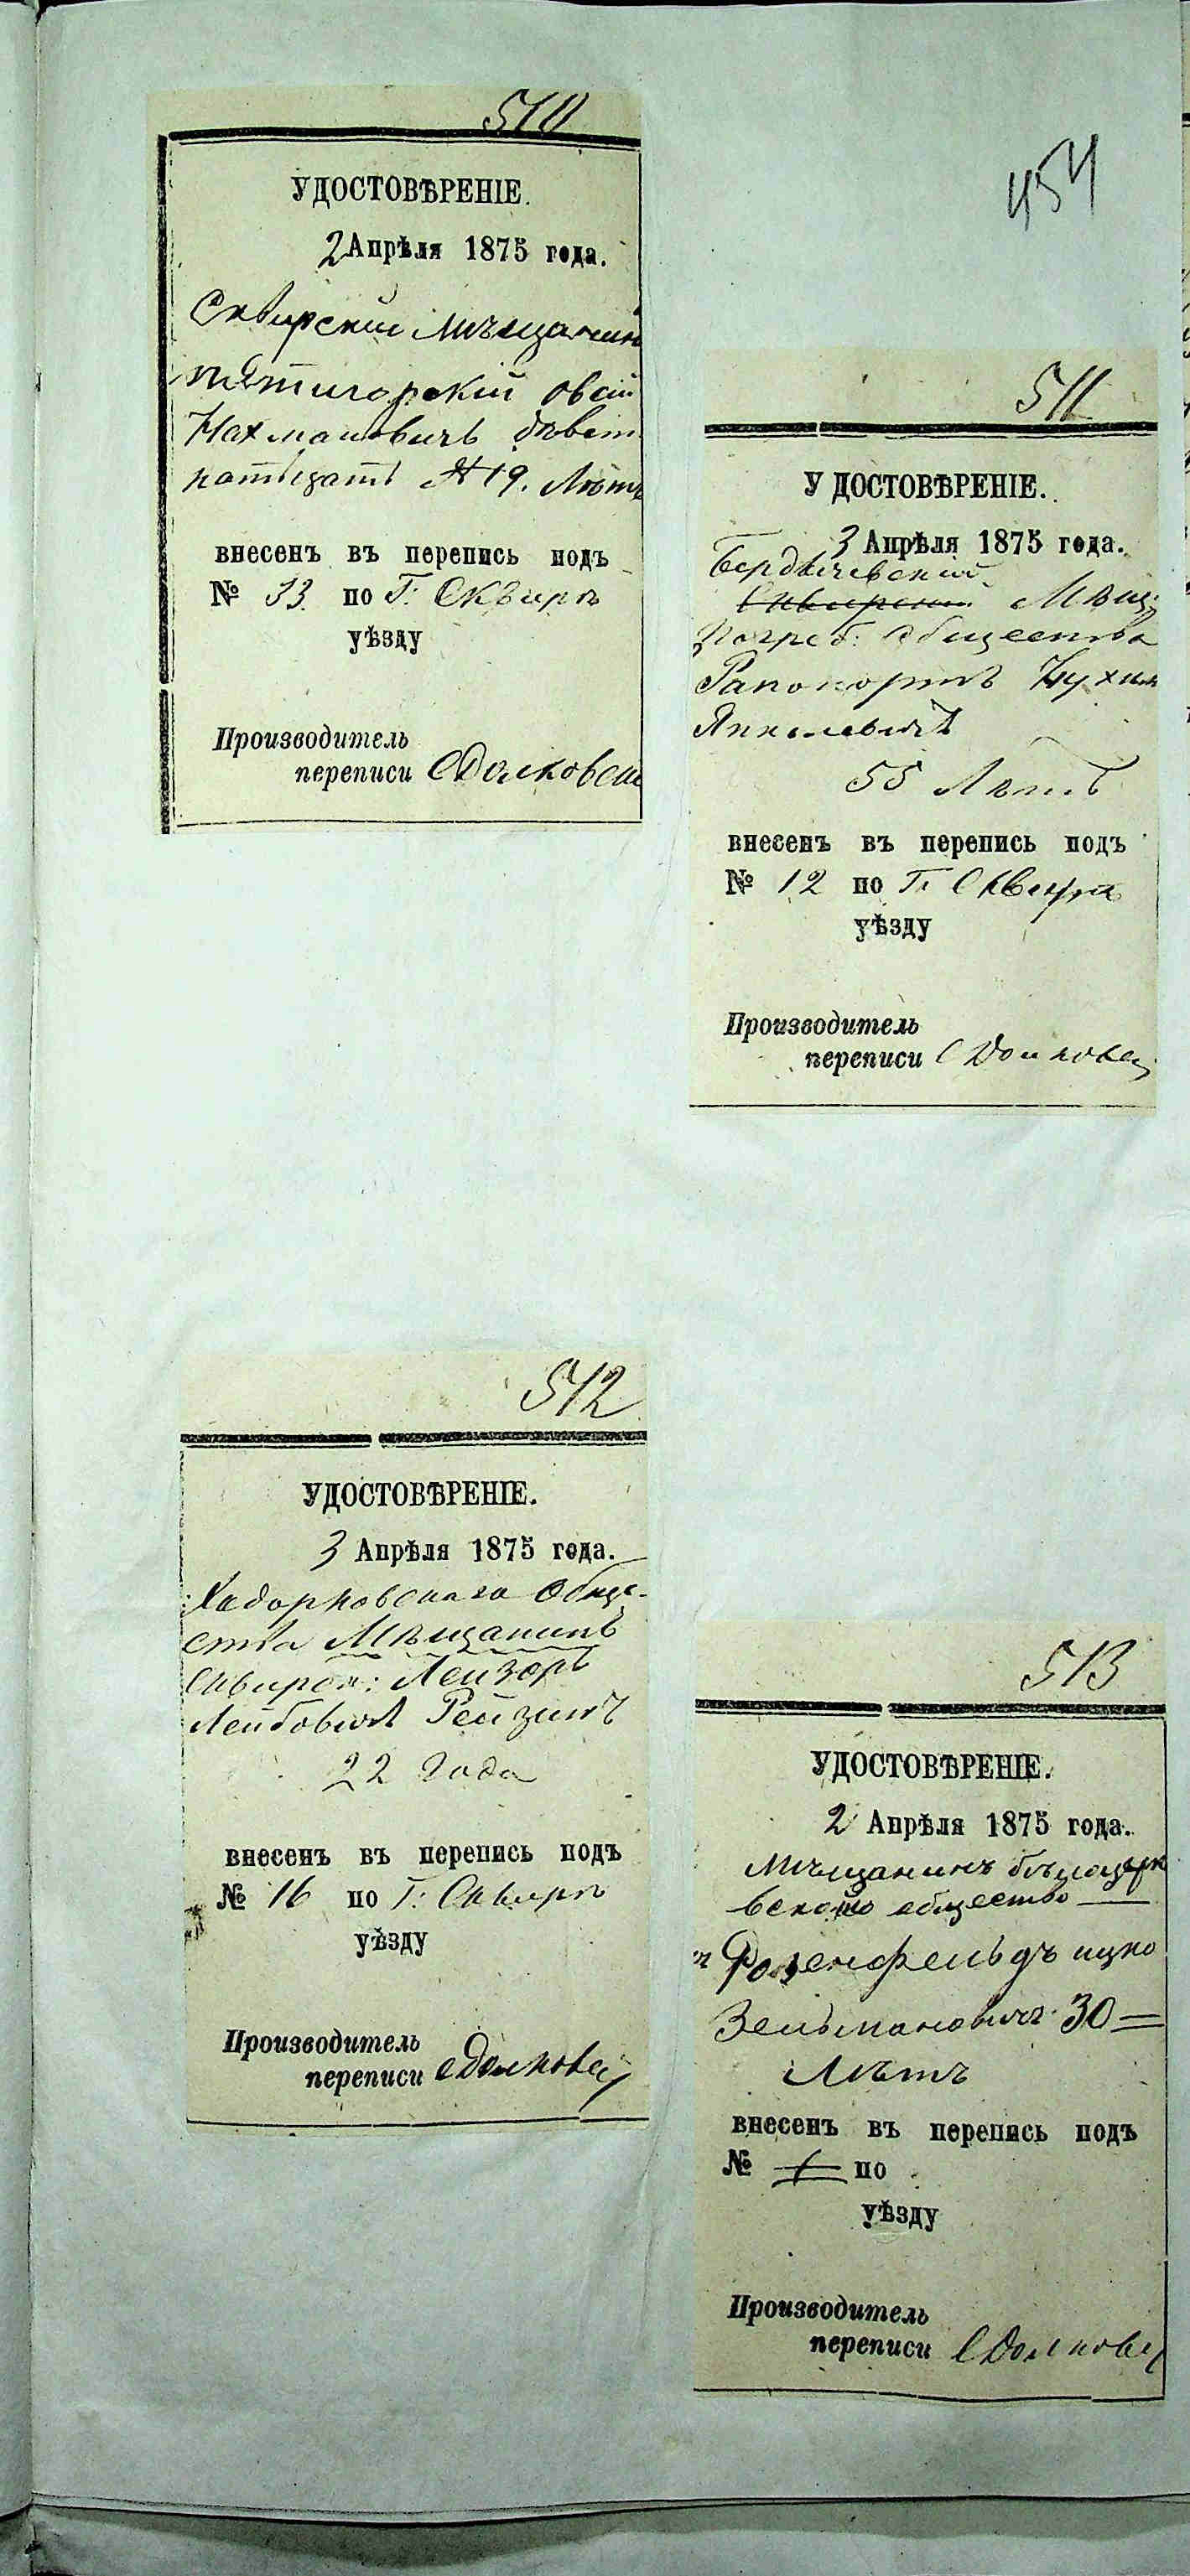 454
510
УДОСТОВѢРЕНІЕ.
2 Апрѣля 1875 года.
Сквирский Мѣщанин
пятигорский овсій
Нахмановичъ дѣвят
натцать № 19. Лѣтъ
внесенъ въ перепись подъ
№ 33 по Г. Сквирѣ
уѣзду
Производитель
переписи
511
УДОСТОВѢРЕНІЕ.
3 Апрѣля 1875 года.
Бердичевский
Сквирский Мѣщ.
Погреб. общества
Рапопортъ
Янкелевичъ
55 Лѣтъ
внесенъ въ перепись подъ
№ 12 по Г. Сквирѣ
уѣзду
Производитель
переписи
512
УДОСТОВѢРЕНІЕ.
3 Апрѣля 1875 года.
Ходорковскаго Обще-
ства Мѣщанинъ
Сквирск: Лейзоръ
Лейбовичъ Рейзинъ
22 Года
внесенъ въ перепись подъ
№ 16 по Г: Сквирѣ
уѣзду
Производитель
переписи
513
УДОСТОВѢРЕНІЕ.
2 Апрѣля 1875 года.
Мѣщанинъ бѣлоцерк
вского общество
Розенфельдъ ицко
Зельмановичъ 30
Лѣтъ
внесенъ въ перепись подъ
№ по
уѣзду
Производитель
переписи